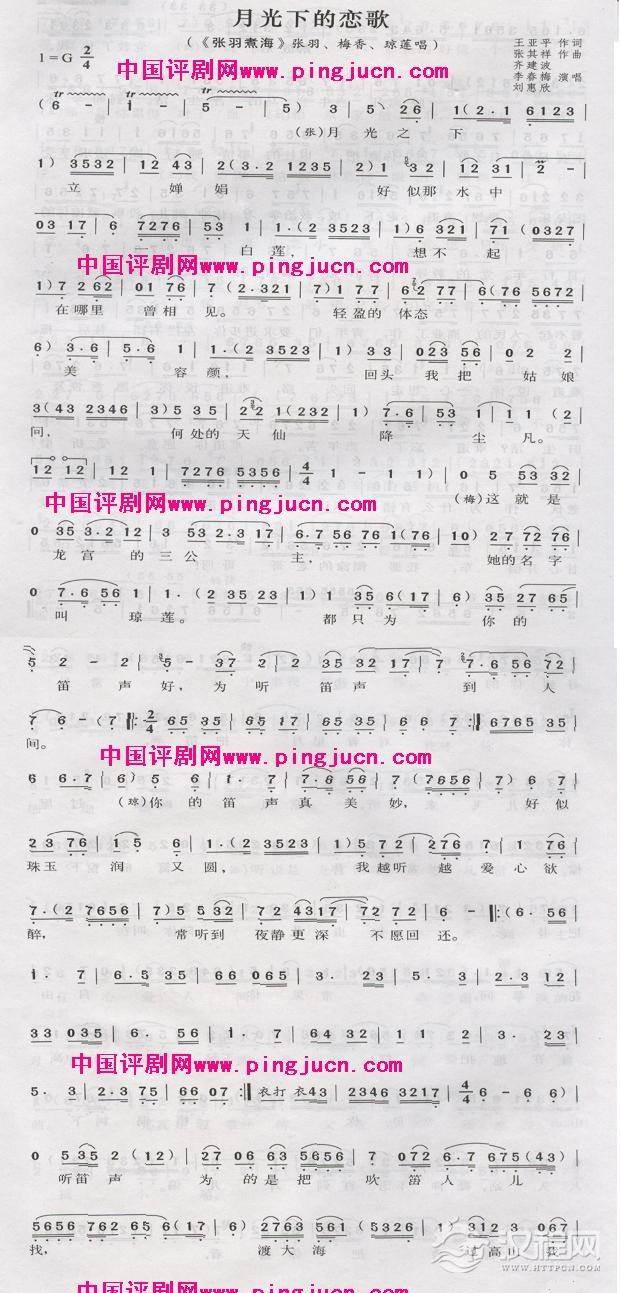 月光下的恋歌
(《张羽煮海》张羽、梅香、琼莲唱)
王亚平 作词
张其祥 作曲
齐建波
李春梅 演唱
刘惠欣
1=G 2/4
中国评剧网www.pingjucn.com
(6 - | 1 - | 5 - | 6 - | 3) 5 | 26 | 1 (2·1 6123
(张)月 光 之 下
1) 3532 | 12 43 | 2(3·2 1235 | 2)1 32 | 12 31 | 2 -
立 婵 娟 好 似那 水 中
03 17 | 6 7276 | 53 1 | 1·(2 3523 | 1)6 321 | 71 (0327
白 莲, 想 不 起
中国评剧网www.pingjucn.com
1) 7 262 | 01 76 | 7 (2·321 | 7) 177 | 62 77 | 6(76 5672
在哪里 曾相 见。 轻盈的 体态
6) 3·6 | 5·6 1 | 1·(2 3523 | 1) 33 | 023 56 | 02 2
美 容颜, 回头 我把 姑娘
3(43 2346 | 3)5 35 | 22 1(232 | 1) 7·6 | 53 1 | 1 1 (2
问, 何处的 天仙 降 尘 凡。
12 12 | 12 1 | 7276 5356 | 4/4 1 - - 1 | 0 5 53 32
(梅)这 就 是
中国评剧网www.pingjucn.com
0 35 3·2 12 | 3 53 2·3 17 | 6·7 56 76 1(76 | 10) 27 72 76
龙宫 的三公 主, 她的名字
0 7·6 56 1 | 1·(2 3523 5 | 1) 6 56 1 | 01 35 27 65
叫 琼莲。 都只为 你的
5 2 - 2 | 5 - 37 2 | 2 35 32 17 | 7 7·6 56 72
笛 声好, 为听 笛声 到人
7 6 - (7 | 2/4 65 35 | 65 17 | 65 35 | 66 7 | 6765 35
间。
中国评剧网www.pingjucn.com
6 6·7 | 6) 5 6 | 1· 7 | 7·6 56 | 7 (7656 | 7) 6 7
(琼)你 的 笛声真 美妙, 好似
23 76 | 15 6 | 1·(2 3523 | 1) 5 72 | 276 7 | 1 76
珠玉 润 又圆, 我越听 越爱心欲
7·(2 7656 | 7) 5 532 | 72 4317 | 7 72 | 6 - (6· 56
醉, 常听到 夜静更深 不愿回 还。
1· 7 | 6·5 35 | 66 065 | 3· 23 | 5· 1 | 2·3 12
33 035 | 6· 56 | 1· 7 | 64 32 | 1 1 2 | 3· 23
中国评剧网www.pingjucn.com
5· 3 | 2·3 75 | 66 07 | 衣打 衣43 | 2346 3217 | 4/4 6 - 6 6)
0 535 2 (12) | 27 06 0 5 6 | 072 6·7 675(43)
听笛 声 为 的是把 吹笛人 儿
5656 762 65 6(17 | 6) 2763 561 | (5635 2317 1) 312 3 067
找, 渡大海 过高山 我
中国评剧网www.pingjucn.com
汉程网
WWW.HTTPCN.COM